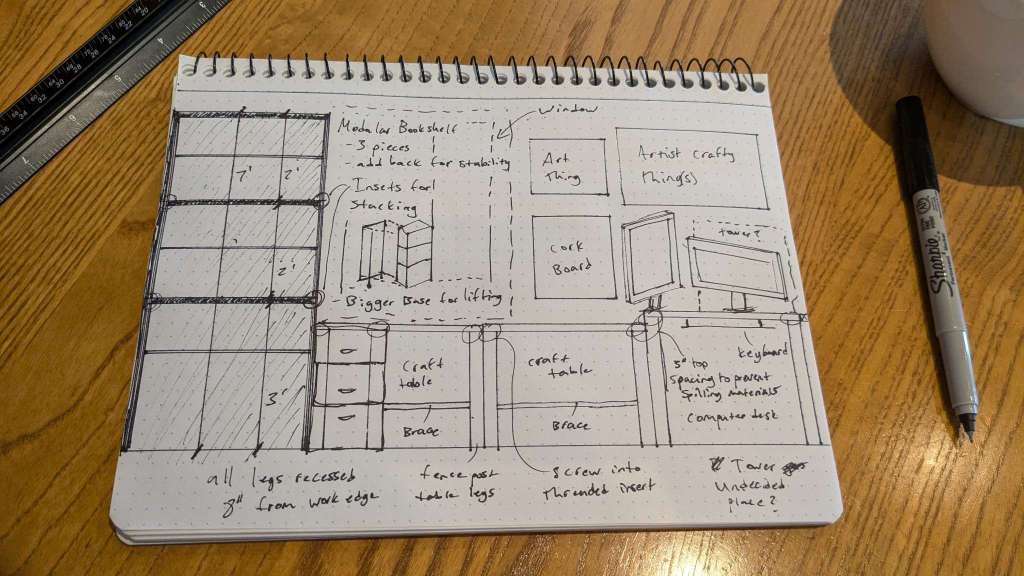 Modular Bookshelf
- 3 pieces
- add back for stability
Insets for
Stacking
- Bigger Base for lifting
window
Art
Thing
Artist Crafty
Thing(s)
Cork
Board
tower?
7'
2'
2'
3'
Craft
table
Brace
Craft
table
Brace
keyboard
3" top
spacing to prevent
spilling materials
Computer desk
all legs recessed
8" from work edge
fence post
table legs
Screw into
Threaded insert
Tower
Undecided
place?
Sharpie